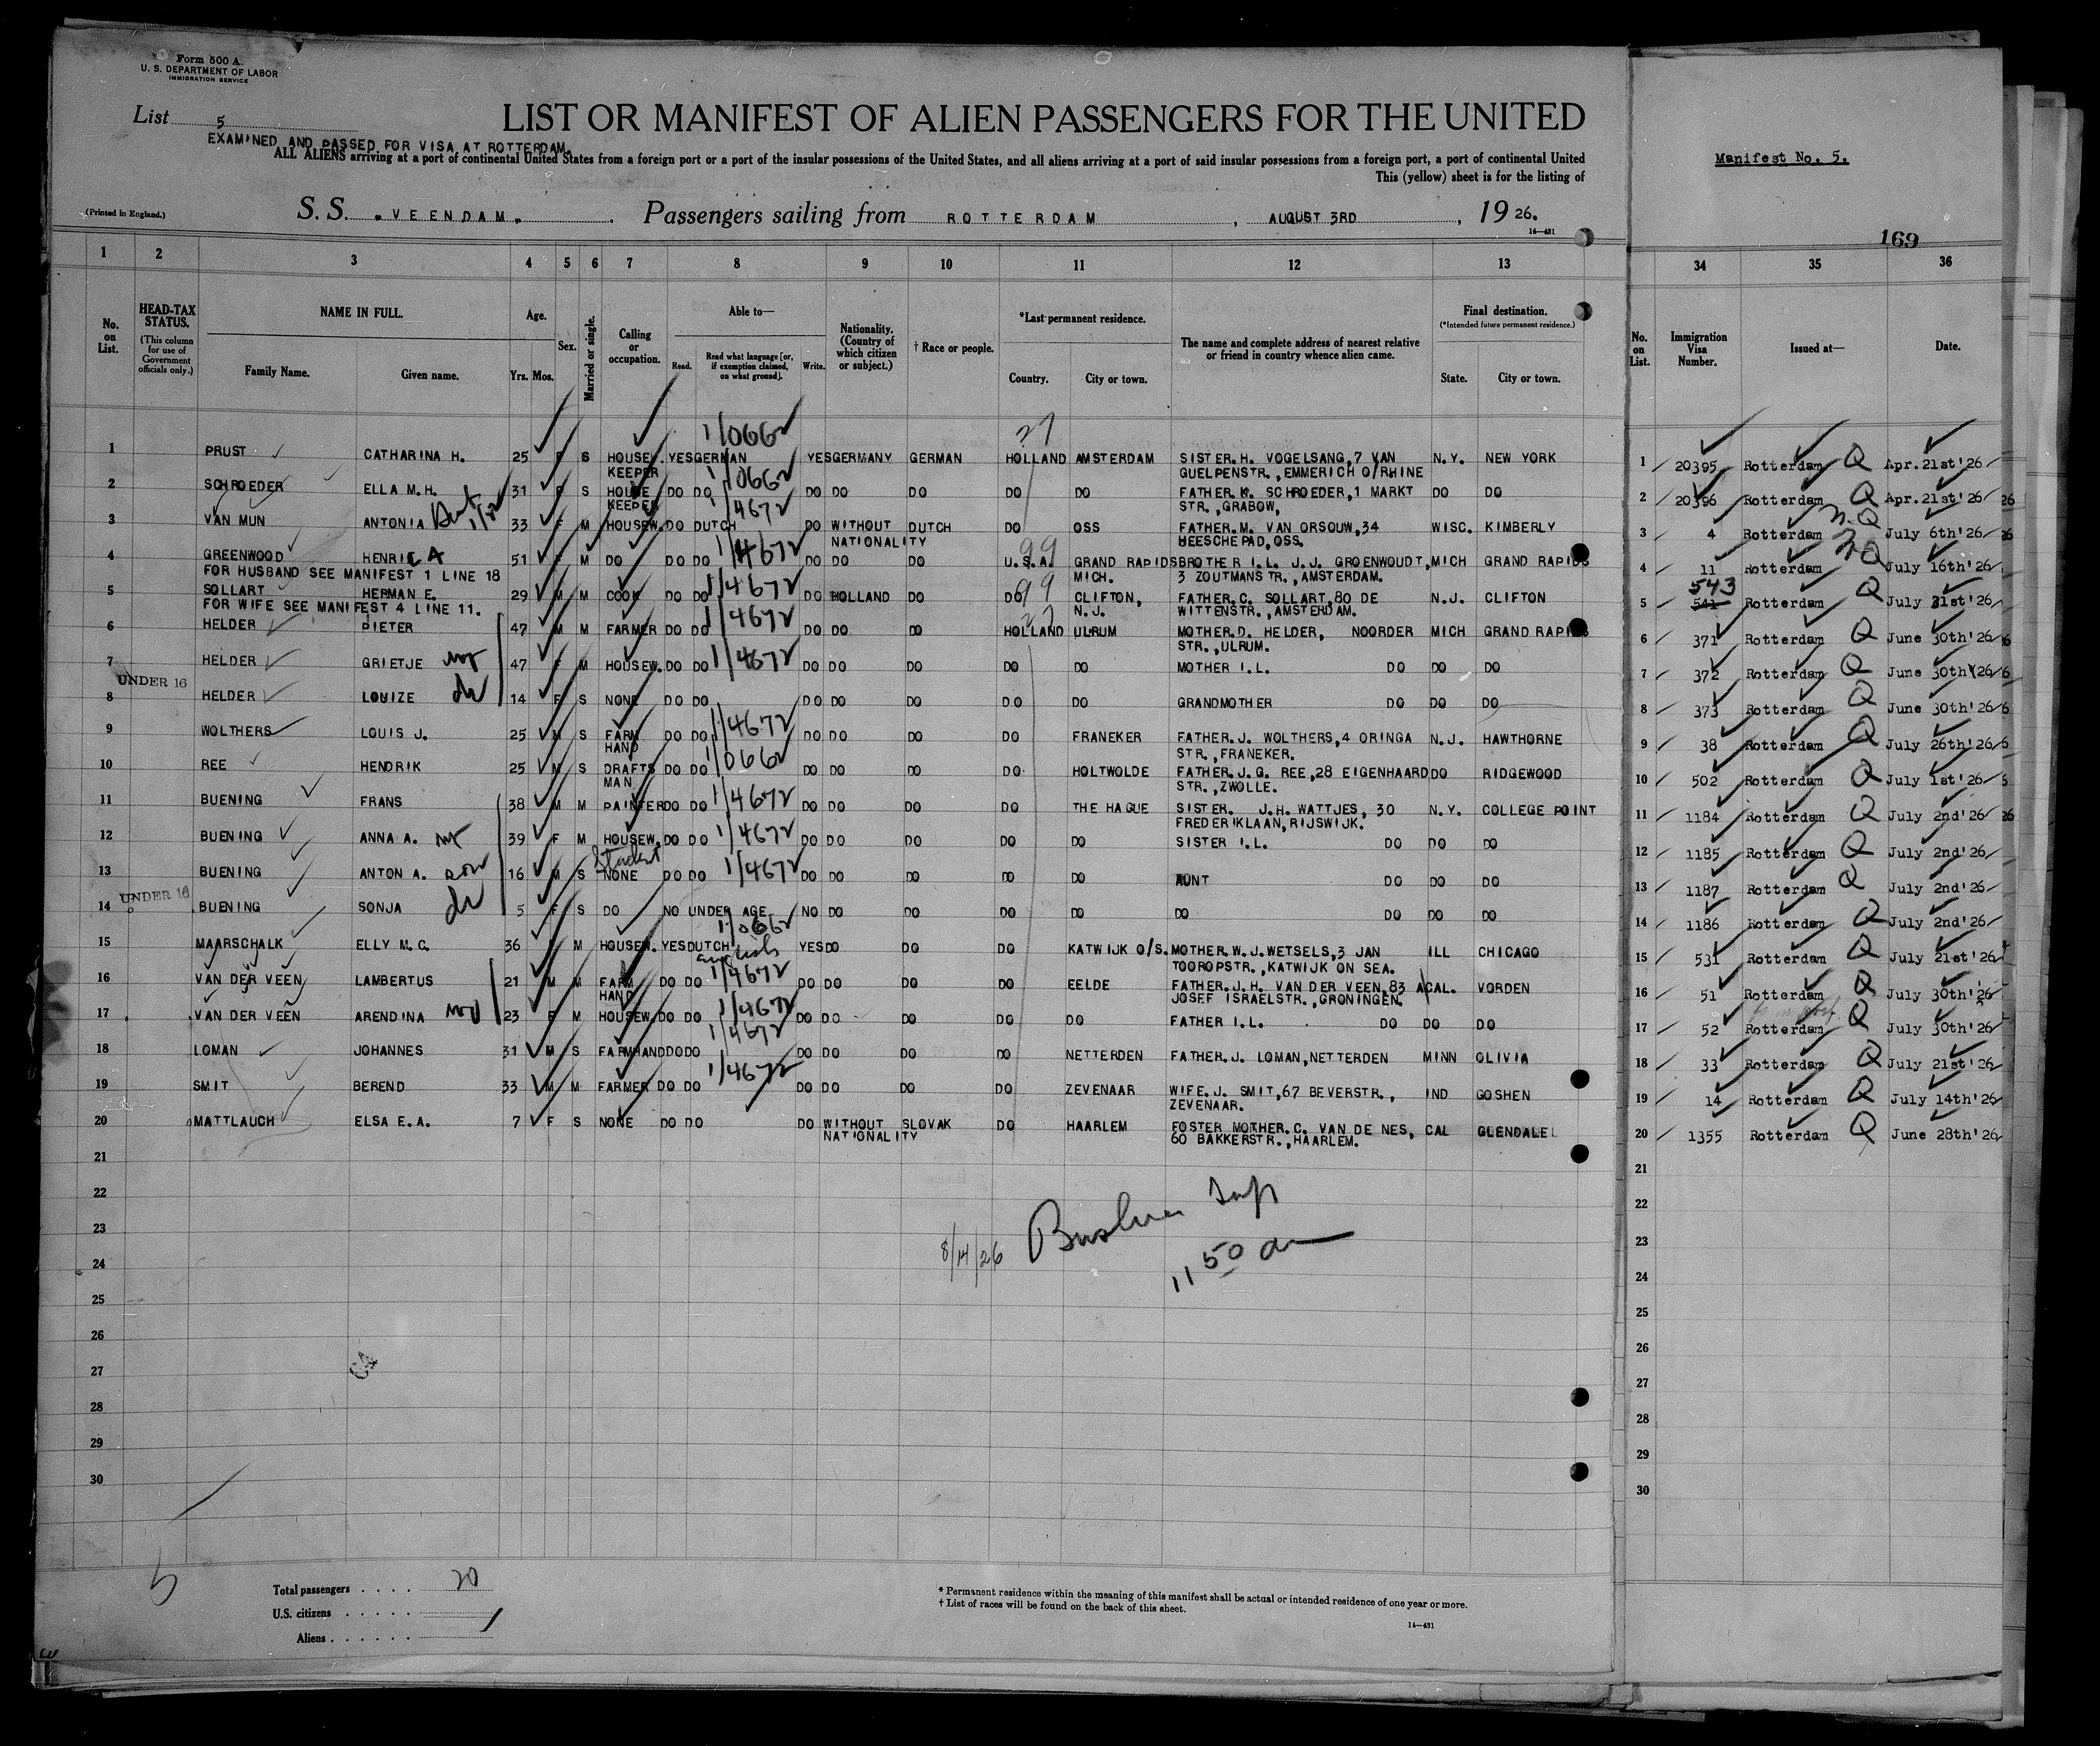 Form 500 A
U. S. DEPARTMENT OF LABOR
IMMIGRATION SERVICE
List 5
LIST OR MANIFEST OF ALIEN PASSENGERS FOR THE UNITED
EXAMINED AND PASSED FOR VISA AT ROTTERDAM.
ALL ALIENS arriving at a port of continental United States from a foreign port or a port of the insular possessions of the United States, and all aliens arriving at a port of said insular possessions from a foreign port, a port of continental United
This (yellow) sheet is for the listing of
Manifest No. 5.
(Printed in England.)
S. S. "VEENDAM" Passengers sailing from ROTTERDAM, AUGUST 3RD, 1926.
14—431
169
1 2 3 4 5 6 7 8 9 10 11 12 13 34 35 36
No. on List.
HEAD-TAX STATUS. (This column for use of Government officials only.)
NAME IN FULL. Family Name. Given name.
Age. Yrs. Mos.
Sex.
Married or single.
Calling or occupation.
Able to— Read. Read what language [or, if exemption claimed, on what ground]. Write.
Nationality. (Country of which citizen or subject.)
† Race or people.
*Last permanent residence. Country. City or town.
The name and complete address of nearest relative or friend in country whence alien came.
Final destination. (*Intended future permanent residence.) State. City or town.
No. on List.
Immigration Visa Number.
Issued at—
Date.
27
1/0662
1 PRUST CATHARINA H. 25 F S HOUSE KEEPER YES GERMAN YES GERMANY GERMAN HOLLAND AMSTERDAM SISTER.H. VOGELSANG,7 VAN GUELPENSTR.,EMMERICH O/RHINE N.Y. NEW YORK 1 20395 Rotterdam Q Apr.21st'26
1/0662
2 SCHROEDER ELLA M.H. 31 F S HOUSE KEEPER DO DO DO DO DO DO DO FATHER.K. SCHROEDER,1 MARKT STR.,GRABOW, DO DO 2 20396 Rotterdam Q Apr.21st'26
1/4672
3 VAN MUN ANTONIA 33 F M HOUSEW. DO DUTCH DO WITHOUT NATIONALITY DUTCH DO OSS FATHER.M. VAN ORSOUW,34 HEESCHEPAD,OSS. WISC. KIMBERLY 3 4 Rotterdam Q July 6th'26
1/4672 99
4 GREENWOOD HENRICA 51 F M DO DO DO DO DO DO U.S.A. GRAND RAPIDS MICH. BROTHER I.L. J.J. GROENWOUDT, 3 ZOUTMANSTR.,AMSTERDAM. MICH GRAND RAPIDS 4 11 Rotterdam Q July 16th'26
FOR HUSBAND SEE MANIFEST 1 LINE 18
1/4672 99 543
5 SOLLART HERMAN E. 29 M M COOK DO DO DO HOLLAND DO DO CLIFTON, N.J. FATHER.C. SOLLART,80 DE WITTENSTR.,AMSTERDAM. N.J. CLIFTON 5 541 Rotterdam Q July 31st'26
FOR WIFE SEE MANIFEST 4 LINE 11.
1/4672 27
6 HELDER PIETER 47 M M FARMER DO DO DO DO DO HOLLAND ULRUM MOTHER.D. HELDER, NOORDER STR.,ULRUM. MICH GRAND RAPIDS 6 371 Rotterdam Q June 30th'26
1/4672
7 HELDER GRIETJE 47 F M HOUSEW. DO DO DO DO DO DO DO MOTHER I.L. DO DO DO 7 372 Rotterdam Q June 30th'26
UNDER 16
8 HELDER LOUIZE 14 F S NONE DO DO DO DO DO DO DO GRANDMOTHER DO DO DO 8 373 Rotterdam Q June 30th'26
1/4672
9 WOLTHERS LOUIS J. 25 M S FARM HAND DO DO DO DO DO DO FRANEKER FATHER.J. WOLTHERS,4 ORINGA STR.,FRANEKER. N.J. HAWTHORNE 9 38 Rotterdam Q July 26th'26
1/0662
10 REE HENDRIK 25 M S DRAFTS MAN DO DO DO DO DO DO HOLTWOLDE FATHER.J.G. REE,28 EIGENHAARD STR.,ZWOLLE. DO RIDGEWOOD 10 502 Rotterdam Q July 1st'26
1/4672
11 BUENING FRANS 38 M M PAINTER DO DO DO DO DO DO THE HAGUE SISTER. J.H. WATTJES, 30 FREDERIKLAAN,RIJSWIJK. N.Y. COLLEGE POINT 11 1184 Rotterdam Q July 2nd'26
1/4672
12 BUENING ANNA A. 39 F M HOUSEW. DO DO DO DO DO DO DO SISTER I.L. DO DO DO 12 1185 Rotterdam Q July 2nd'26
Student 1/4672
13 BUENING ANTON A. son 16 M S NONE DO DO DO DO DO DO DO AUNT DO DO DO 13 1187 Rotterdam Q July 2nd'26
UNDER 16
14 BUENING SONJA 5 F S DO NO UNDER AGE NO DO DO DO DO DO DO DO DO 14 1186 Rotterdam Q July 2nd'26
1/0662
15 MAARSCHALK ELLY M.C. 36 F M HOUSEW. YES DUTCH english YES DO DO DO KATWIJK O/S. MOTHER.W.J.WETSELS,3 JAN TOOROPSTR.,KATWIJK ON SEA. ILL CHICAGO 15 531 Rotterdam Q July 21st'26
1/4672
16 VAN DER VEEN LAMBERTUS 21 M M FARM HAND DO DO DO DO DO DO EELDE FATHER.J.H. VAN DER VEEN,83 A JOSEF ISRAELSTR.,GRONINGEN. CAL. VORDEN 16 51 Rotterdam Q July 30th'26
1/4672
17 VAN DER VEEN ARENDINA 23 F M HOUSEW. DO DO DO DO DO DO DO FATHER I.L. DO DO DO 17 52 Rotterdam Q July 30th'26
1/4672
18 LOMAN JOHANNES 31 M S FARMHAND DO DO DO DO DO DO NETTERDEN FATHER.J. LOMAN,NETTERDEN MINN OLIVIA 18 33 Rotterdam Q July 21st'26
1/4672
19 SMIT BEREND 33 M M FARMER DO DO DO DO DO DO ZEVENAAR WIFE.J. SMIT,67 BEVERSTR., ZEVENAAR. IND GOSHEN 19 14 Rotterdam Q July 14th'26
20 MATTLAUCH ELSA E.A. 7 F S NONE DO DO DO WITHOUT NATIONALITY SLOVAK DO HAARLEM FOSTER MOTHER.C. VAN DE NES, 60 BAKKERSTR.,HAARLEM. CAL GLENDALE 20 1355 Rotterdam Q June 28th'26
21 21
22 22
23 23
8/14/26
11 50 am
24 24
25 25
26 26
27 27
28 28
29 29
30 30
5
Total passengers 20
U.S. citizens
Aliens
* Permanent residence within the meaning of this manifest shall be actual or intended residence of one year or more.
† List of races will be found on the back of this sheet.
14—431